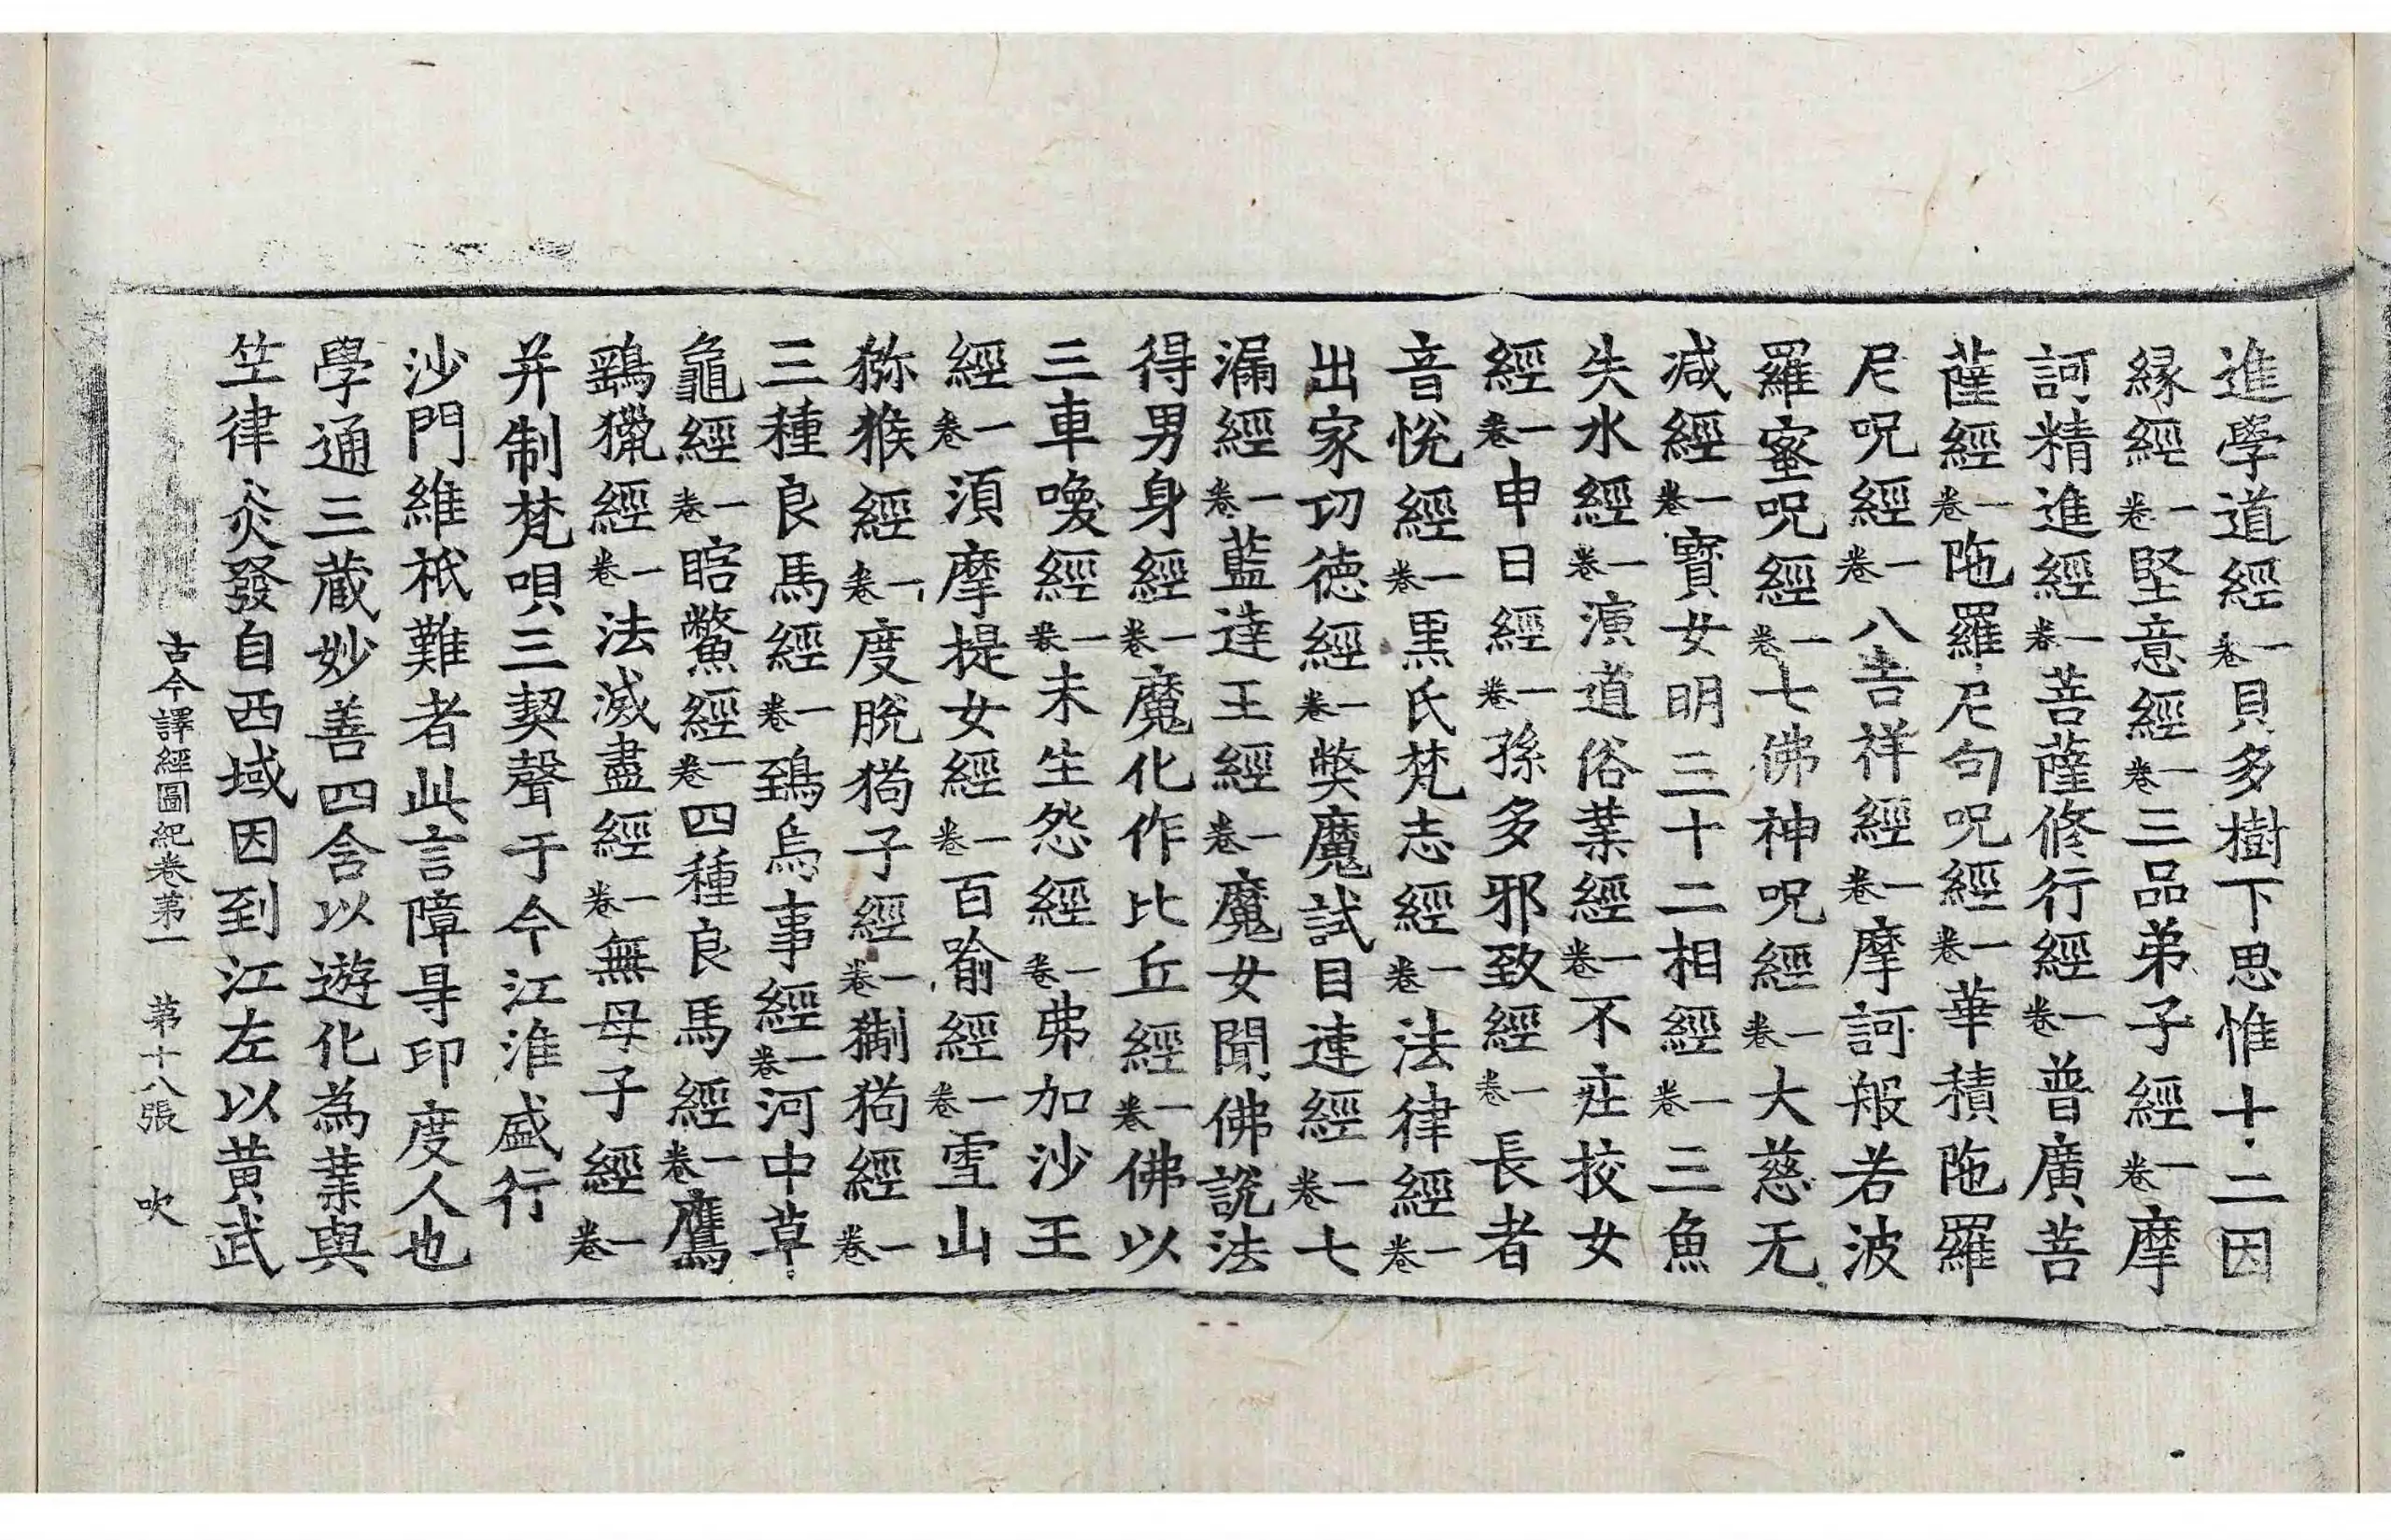 進學道經一卷貝多樹下思惟十二因
縁經一卷堅意經一卷三品弟子經一卷摩
訶精進經一卷菩薩修行經一卷普廣菩
薩經一卷陁羅尼句呪經一卷華積陁羅
尼呪經一卷八吉祥經一卷摩訶般若波
羅蜜呪經一卷七佛神呪經一卷大慈无
減經一卷寳女明三十二相經一卷三魚
失水經一卷演道俗業經一卷不庄挍女
經一卷申日經一卷孫多邪致經一卷長者
音悅經一卷黒氏梵志經一卷法律經一卷
出家功德經一卷獘魔試目連經一卷七
漏經一卷藍達王經一卷魔女聞佛說法
得男身經一卷魔化作比丘經一卷佛以
三車喚經一卷未生怨經一卷弗加沙王
經一卷湏摩提女經一卷百喻經一卷雪山
猕猴經一卷度脫猘子經一卷猘猘經一卷
三種良馬經一卷鵄烏事經一卷河中草
龜經一卷瞎鱉經一卷四種良馬經一卷鷹
鷂獵經一卷法滅盡經一卷無母子經一卷
并制梵唄三契聲于今江淮盛行
沙門維祇難者此言障㝵印度人也
學通三藏妙善四含以遊化為業與
笁律炎發自西域因到江左以黄武
古今譯經圖紀卷苐一　苐十八張　吹